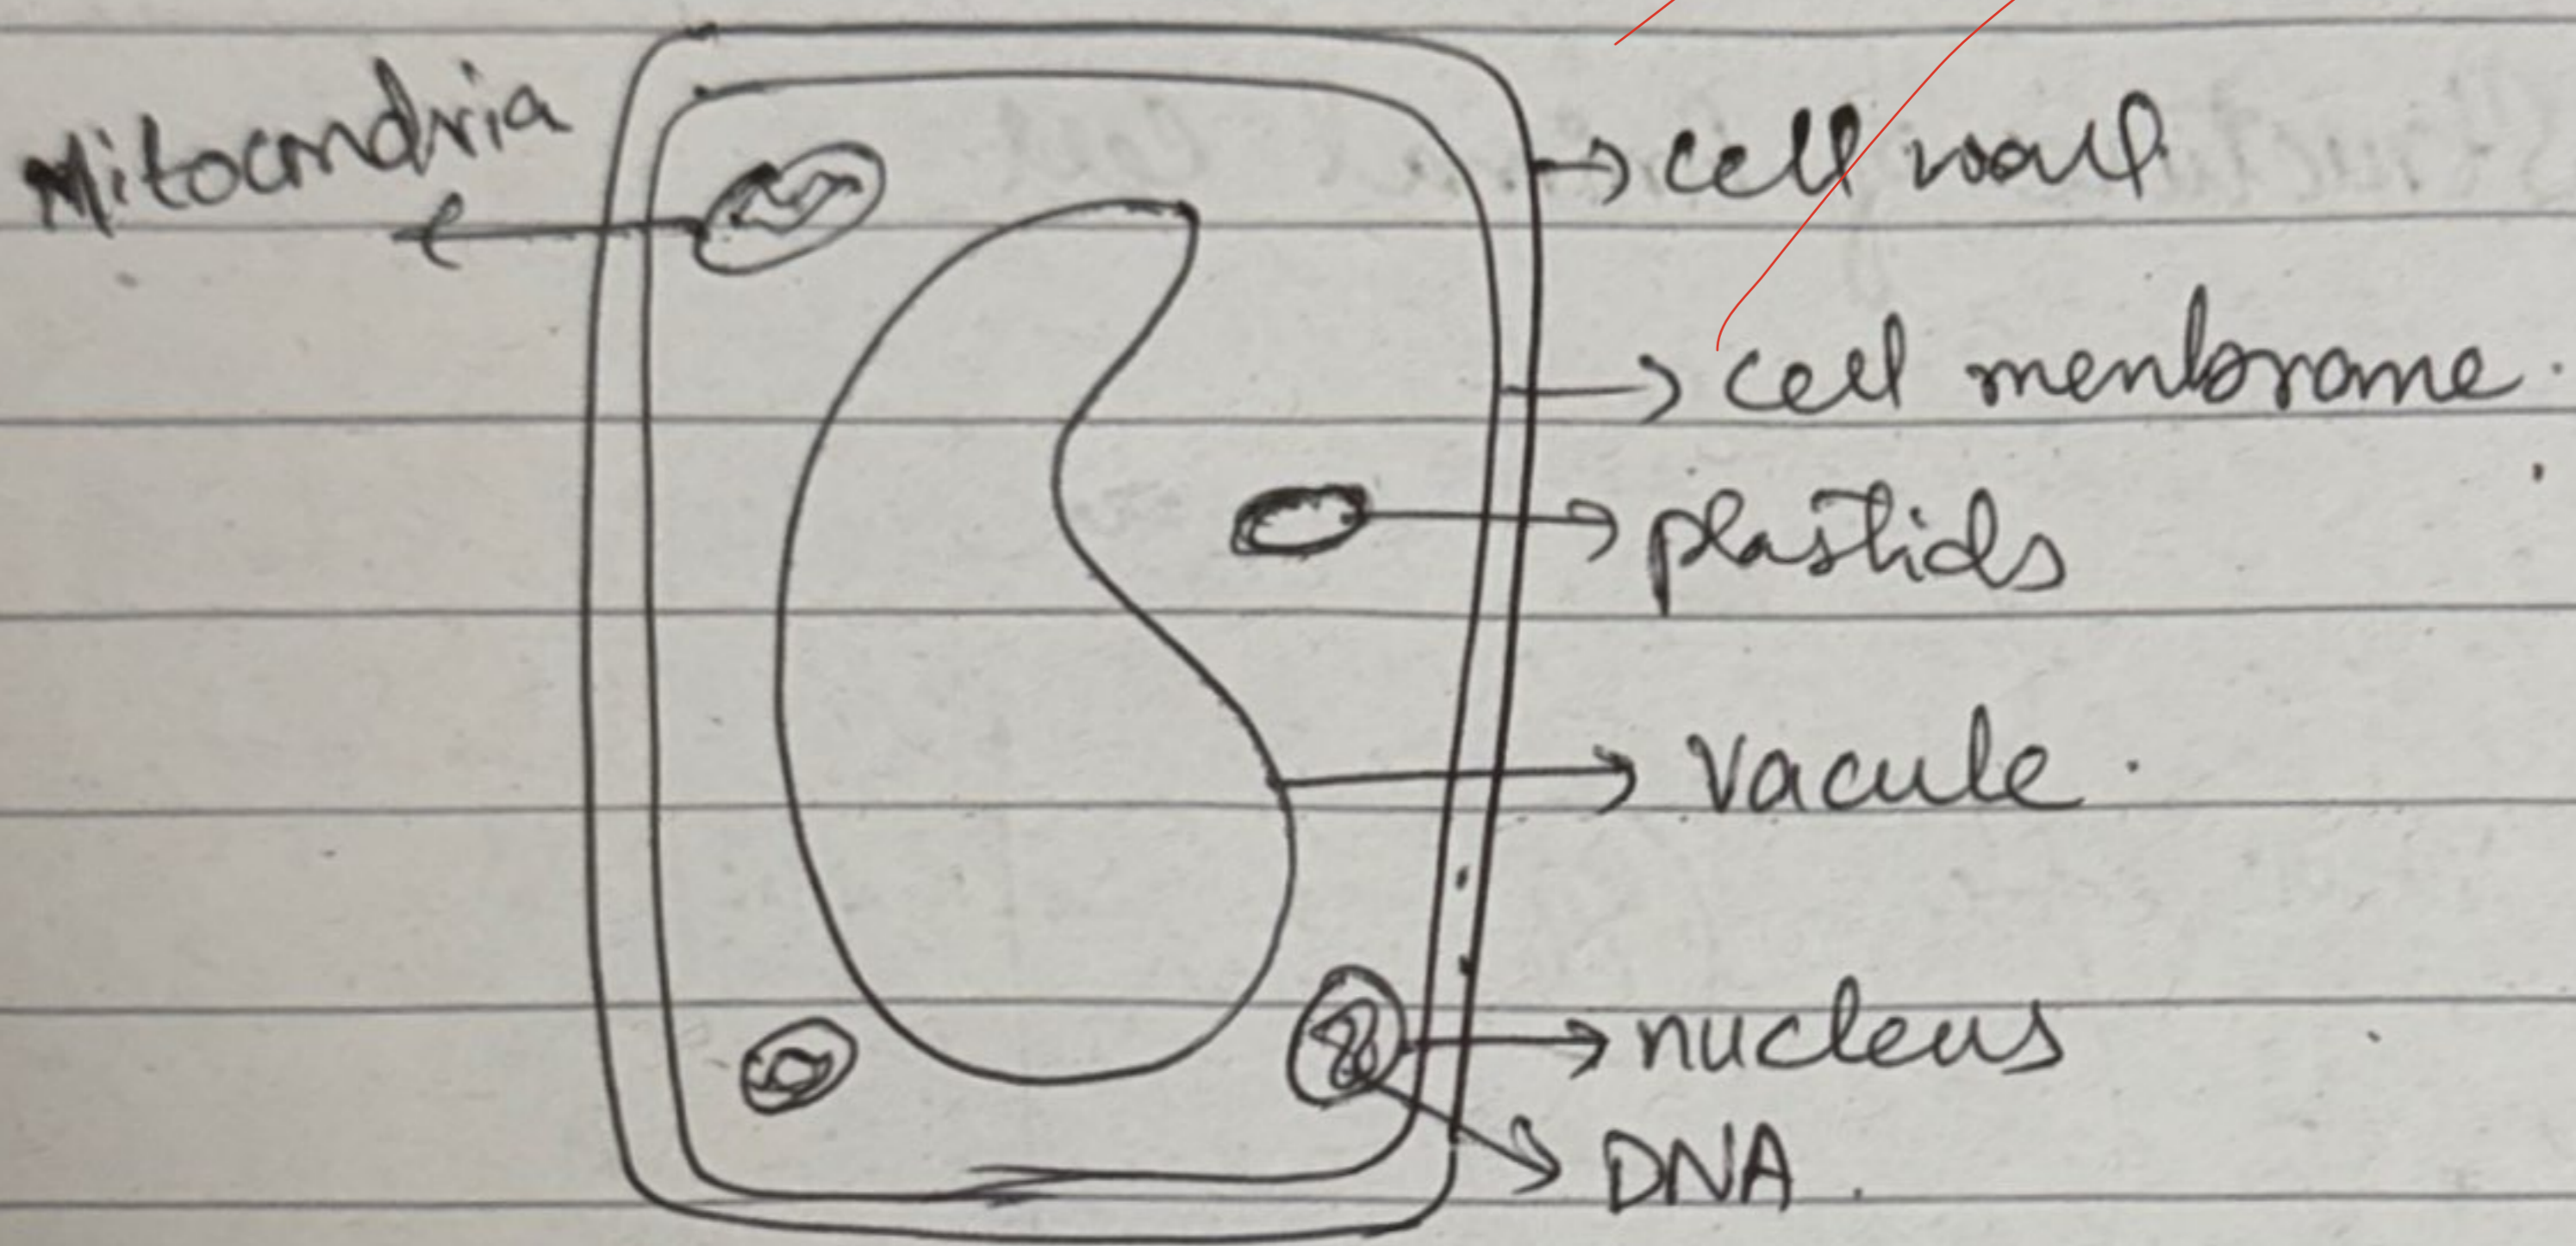 Mitocndria
cell wall
cell menbrane.
plastids
Vacule.
nucleus
DNA.